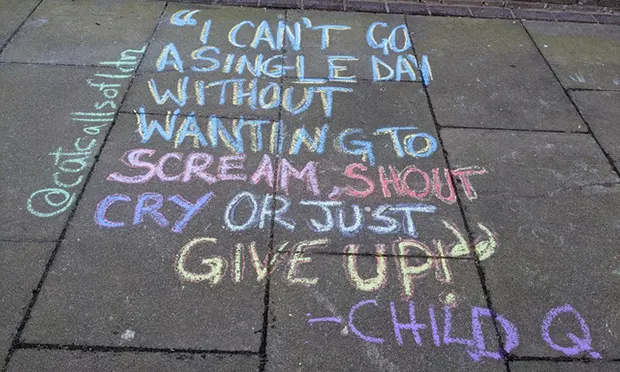 "I CAN'T GO
A SINGLE DAY
WITHOUT
WANTING TO
SCREAM, SHOUT
CRY OR JUST
GIVE UP!"
- CHILD Q.
@catcallsofldn